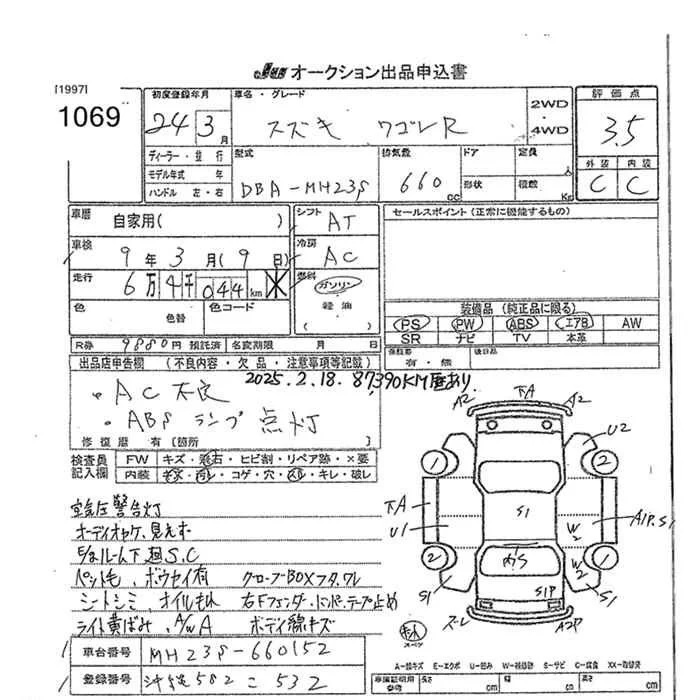 オークション出品申込書
[1997]
1069
初度登録年月
24 3月
車名・グレード
スズキ ワゴンR
2WD
4WD
評価点
3.5
外装 内装
C C
ディーラー・並行
モデル年式 年
ハンドル 左・右
型式
DBA-MH23S
排気量
660 cc
ドア
形状
定員 人
積数 Kg
車歴
自家用( )
シフト
AT
車検
9年3月(9日)
冷房
AC
走行
6万4千044km
燃料
ガソリン
軽油
( )
色
色替
色コード
R券 9880円 預託済 名変期限 月 日
セールスポイント(正常に機能するもの)
装備品(純正品に限る)
PS PW ABS エアB AW
SR ナビ TV 本革
保証書 有・無
後日品
出品店申告欄(不良内容・欠品・注意事項等記載)
2025.2.18. 87,390KM歴あり
・AC不良
・ABSランプ点灯
修復歴 有[箇所 ]
検査員記入欄
FW キズ・飛石・ヒビ割・リペア跡・×要
内装 コゲ・穴・キレ・破レ
空気圧警告灯
オーディオカケ、見えず
ペット毛、ボウセイ有 グローブBOXフタ、ワレ
シートシミ、オイルもれ 右Fフェンダ・バンパーテープ止め
ライト黄ばみ、A/WA ボディ線キズ
車台番号 MH23S-660152
登録番号 582 こ 532
A2 下A A2
U2
1 2
下A
U1
S1
W2
A1P.S1
2 2
W2
S1
S1P
S1
A2P
スペア
A-線キズ E-エクボ U-凹み W-補修跡 S-サビ C-腐食 XX-取替済
車庫証明用参考
長さ cm
幅 cm
高さ cm